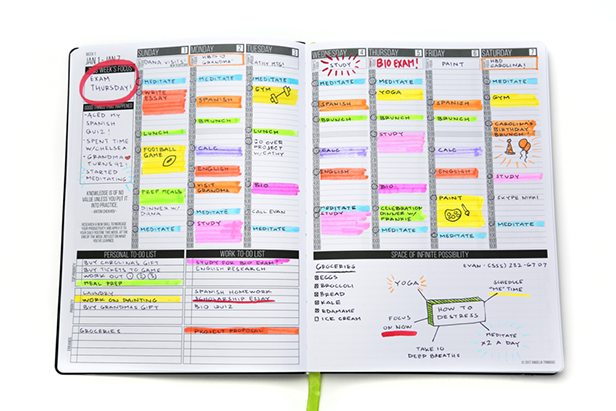 WEEK 1
JAN 1 - JAN 7
WEEK'S FOCUS
EXAM
THURSDAY!
GOOD THINGS THAT HAPPENED
ACED MY
SPANISH
QUIZ!
SPENT TIME
W/CHELSEA
GRANDMA
TURNS 42!
STARTED
MEDITATING
KNOWLEDGE IS OF NO
VALUE UNLESS YOU PUT IT
INTO PRACTICE.
SUNDAY 1
DANA VISITS!
MEDITATE
WRITE
ESSAY
LUNCH
FOOTBALL
GAME
PREP MEALS
DINNER W/
DANA
MEDITATE
MONDAY 2
HBD
MEDITATE
SPANISH
BRUNCH
CALC
ENGLISH
VISIT
GRANDMA
MEDITATE
STUDY
TUESDAY 3
CATHY MTG!
MEDITATE
GYM
LUNCH
20 OVER
PROJECT
W/CATHY
BIO
CALL EVAN
MEDITATE
WEDNESDAY 4
STUDY
MEDITATE
SPANISH
BRUNCH
CALC
ENGLISH
MEDITATE
STUDY
THURSDAY 5
BIO EXAM!
MEDITATE
YOGA
BRUNCH
STUDY
BIO
CELEBRATION
DINNER W/
FRANKIE
MEDITATE
FRIDAY 6
PAINT
MEDITATE
SPANISH
BRUNCH
CALC
ENGLISH
PAINT
MEDITATE
SATURDAY 7
HBD
CAROLINA!
MEDITATE
GYM
CAROLINA'S
BIRTHDAY
BRUNCH
STUDY
SKYPE NIKKI
MEDITATE
PERSONAL TO-DO LIST
BUY CAROLINA'S GIFT
BUY TICKETS TO GAME
WORK OUT
MEAL PREP
LAUNDRY
WORK ON PAINTING
BUY GRANDMA'S GIFT
GROCERIES
WORK TO-DO LIST
STUDY FOR BIO EXAM!
ENGLISH RESEARCH
SPANISH HOMEWORK
SCHOLARSHIP ESSAY
BIO QUIZ
PROJECT PROPOSAL
SPACE OF INFINITE POSSIBILITY
GROCERIES
EGGS
BROCCOLI
BREAD
KALE
EDAMAME
ICE CREAM
EVAN - (555) 232-6707
YOGA
SCHEDULE
"ME" TIME
HOW TO
DESTRESS
FOCUS
ON NOW
MEDITATE
X2 A DAY
TAKE 10
DEEP BREATHS